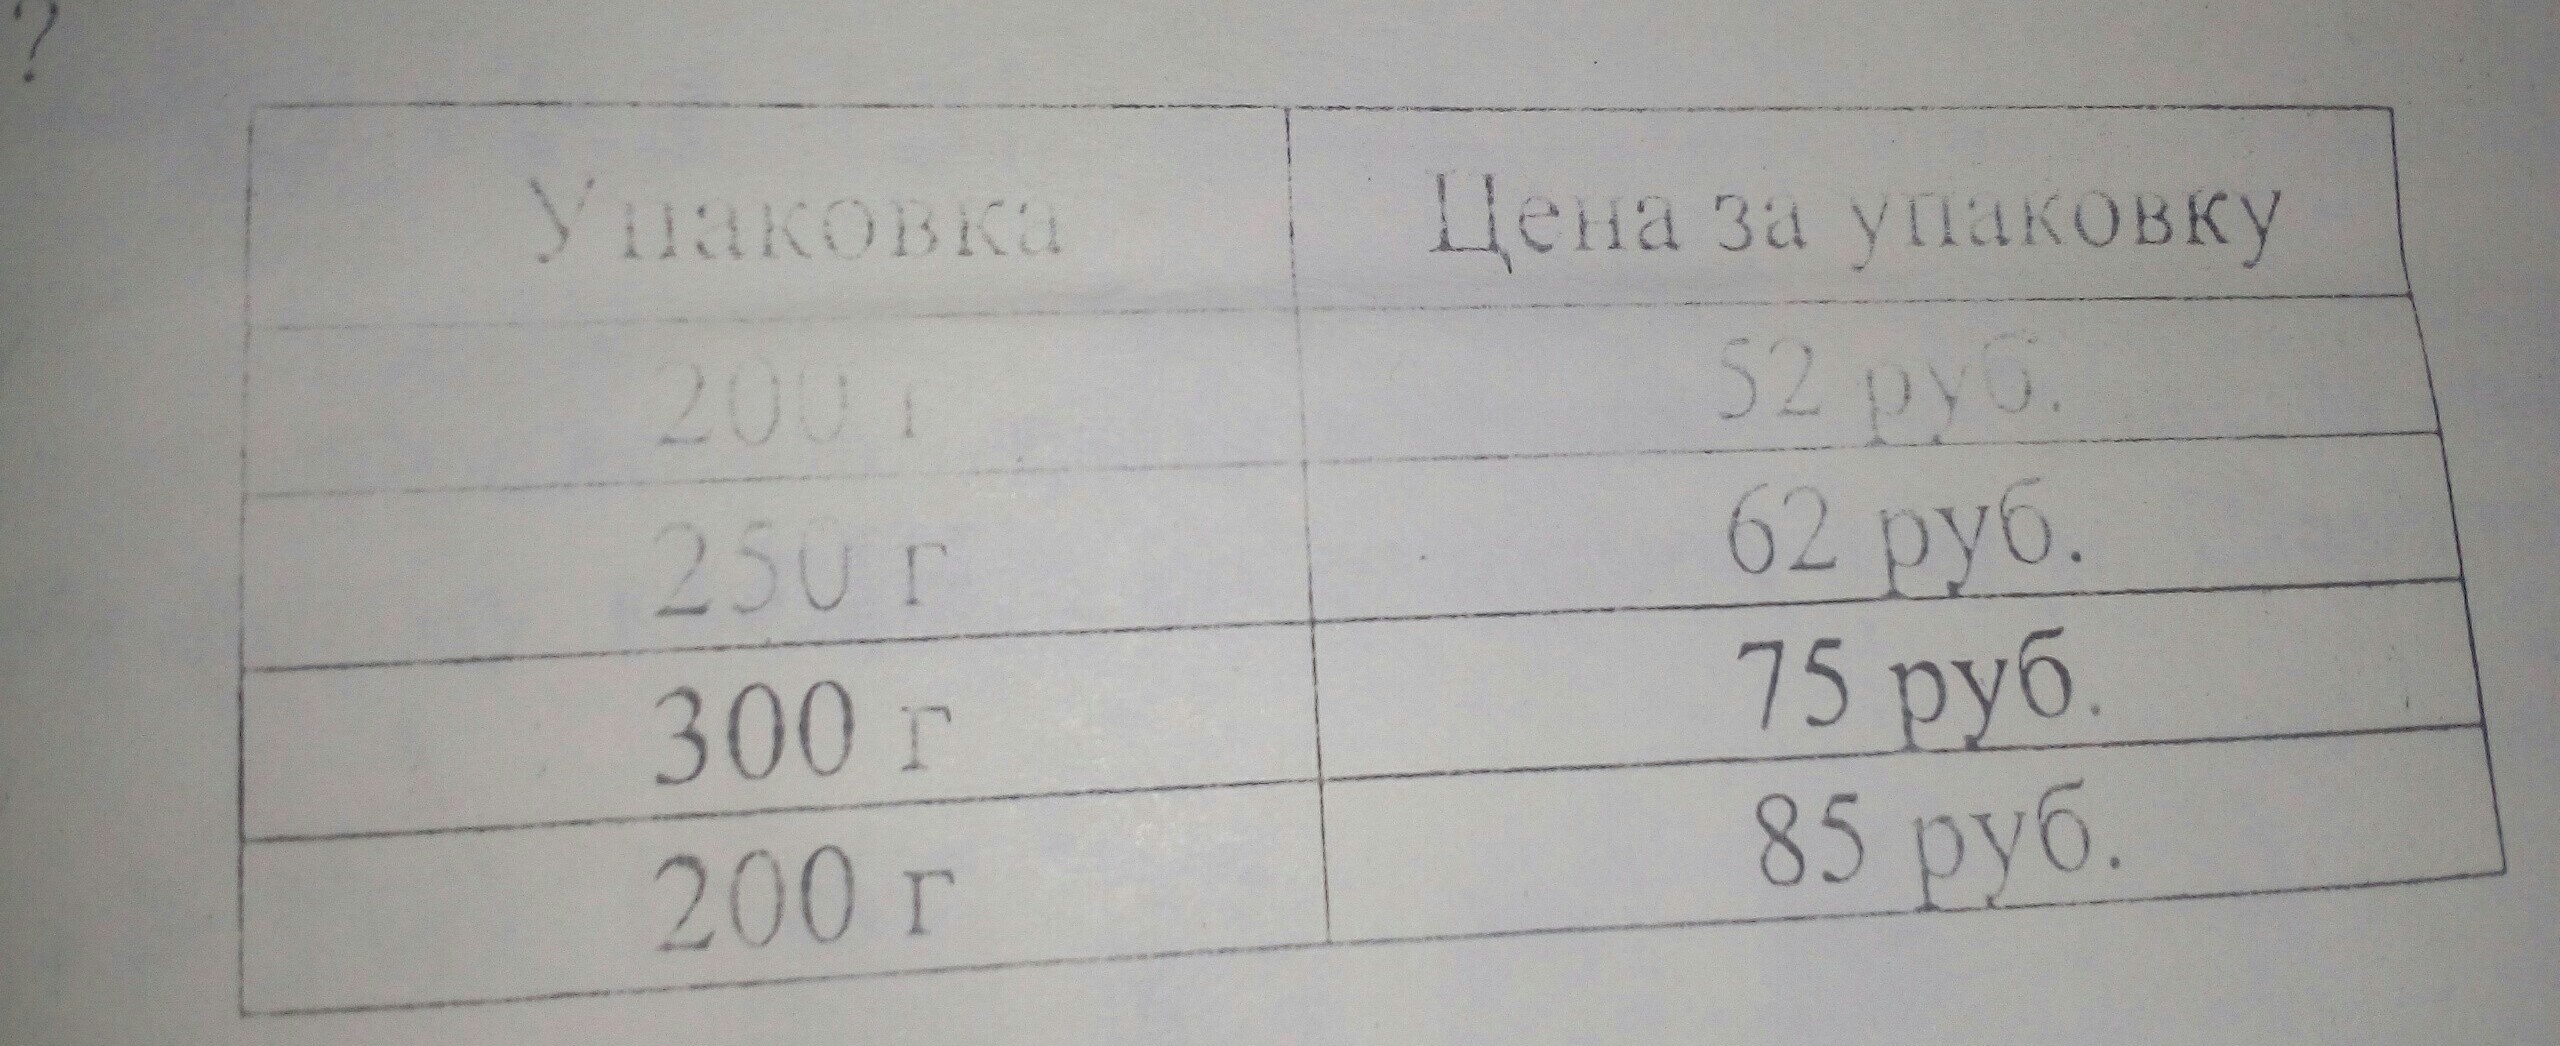 ?
Упаковка Цена за упаковку
200 г 52 руб.
250 г 62 руб.
300 г 75 руб.
200 г 85 руб.